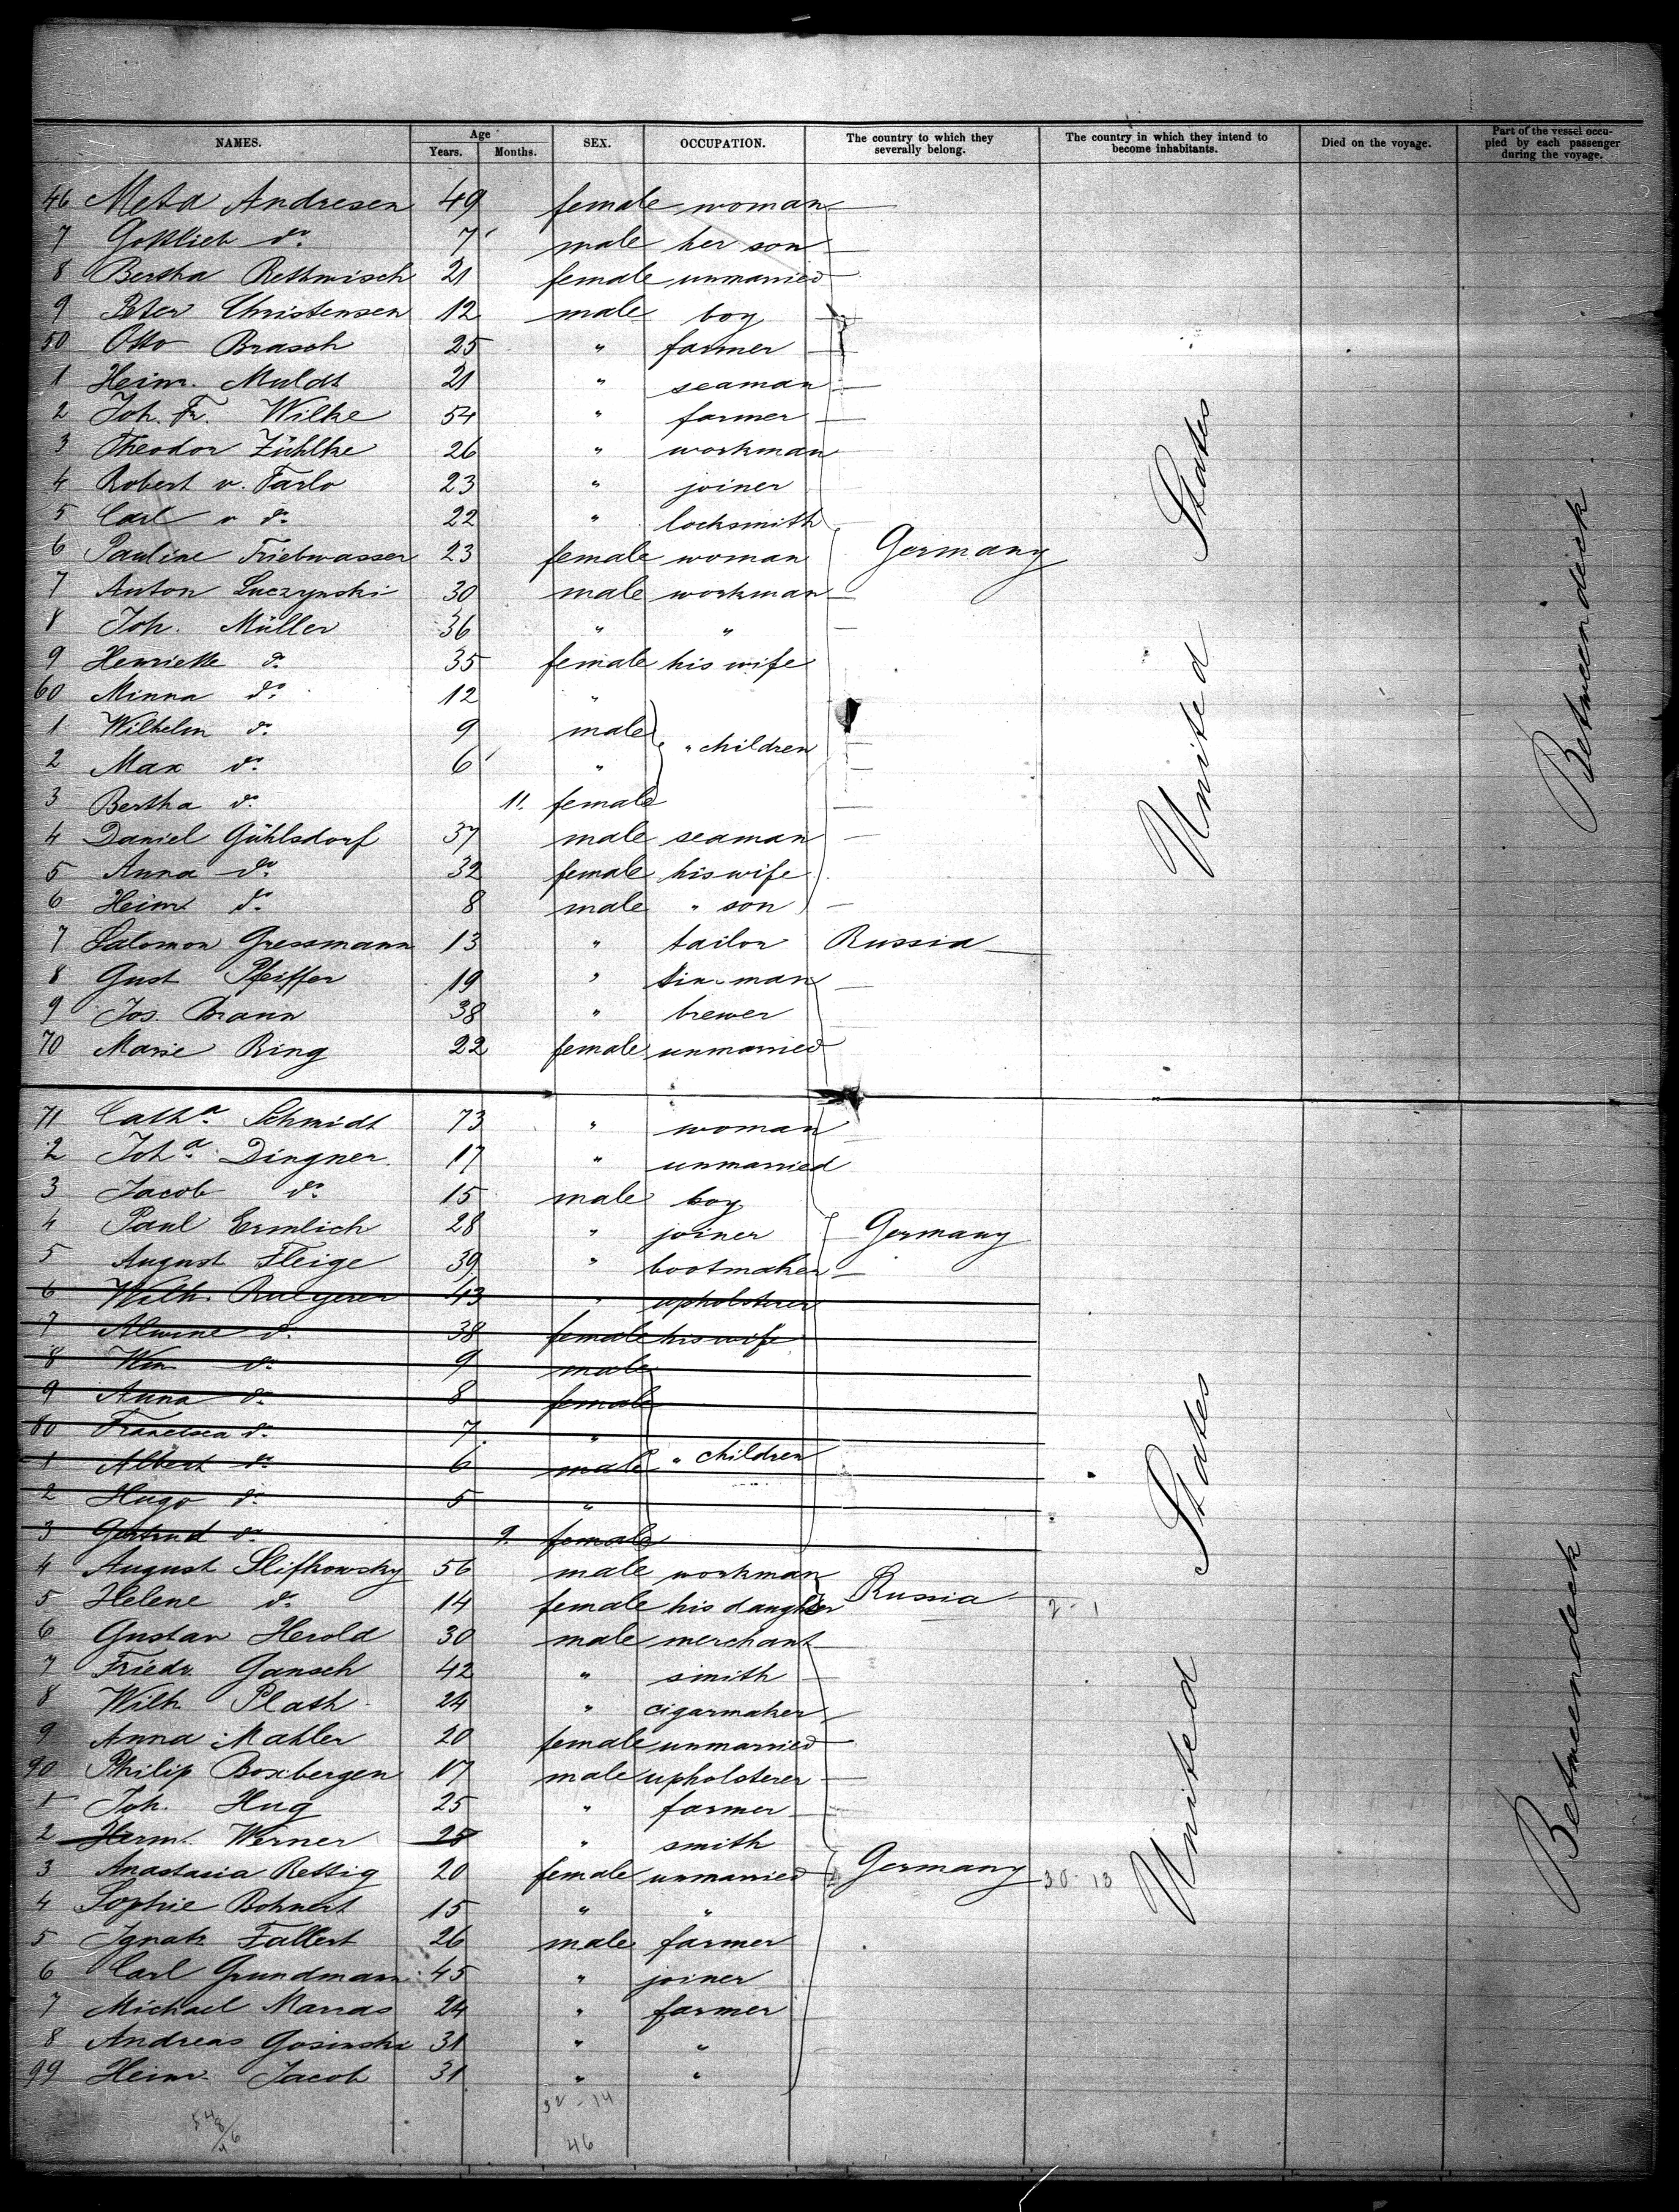 NAMES. Age Years. Months. SEX. OCCUPATION. The country to which they severally belong. The country in which they intend to become inhabitants. Died on the voyage. Part of the vessel occupied by each passenger during the voyage.
46 Meta Andresen 49 female woman
7 Gottlieb do. 7 male her son
8 Bertha Rethwisch 21 female unmarried
9 Peter Christensen 12 male boy
50 Otto Brasch 25 " farmer
1 Heinr. Muldt 21 " seaman
2 Joh. Fr. Wilke 54 " farmer
3 Theodor Zühlke 26 " workman
4 Robert v. Tarlo 23 " joiner
5 Carl v do. 22 " locksmith
6 Pauline Triebwasser 23 female woman Germany
7 Anton Luczynski 30 male workman
8 Joh. Müller 36 " "
9 Henriette do. 35 female his wife
60 Minna do. 12 "
1 Wilhelm do. 9 male
2 Max do. 6 " " children
3 Bertha do. 11. female
4 Daniel Gühlsdorf 37 male seaman
5 Anna do. 32 female his wife
6 Heinr. do. 8 male " son
7 Salomon Gressmann 13 " tailor Russia
8 Gust Pfeiffer 19 " tin-man
9 Jos. Braun 38 " brewer
70 Marie Ring 22 female unmarried
United States
Betweendeck
71 Catha. Schmidt 73 " woman
2 Joha. Dingner 17 " unmarried
3 Jacob do. 15 male boy
4 Paul Ermlich 28 " joiner Germany
5 August Fleige 39 " bootmaker
6 Wilh. 43 " upholsterer
7 Alwine do. 38 female his wife
8 Wm do. 9 male
9 Anna do. 8 female
80 Francisca do. 7 "
1 Albert do. 6 male " children
2 Hugo do. 5 "
3 Gertrud do. 9. female
4 August Slifkowsky 56 male workman
5 Helene do. 14 female his daughter Russia 2-1
6 Gustav Herold 30 male merchant
7 Friedr. Gansch 42 " smith
8 Wilh Plath 24 " cigarmaker
9 Anna Mahler 20 female unmarried
90 Philip Boxbergen 17 male upholsterer
1 Joh. Hug 25 " farmer
2 Herm. Werner 25 " smith
3 Anastasia Rettig 20 female unmarried Germany 30-13
4 Sophie Bohnert 15 " "
5 Ignatz Fallert 26 male farmer
6 Carl Grundmann 45 " joiner
7 Michael Marras 24 " farmer
8 Andreas Gosinski 31 " "
99 Heinr. Jacob 31 " "
United States
Betweendeck
32-14
46